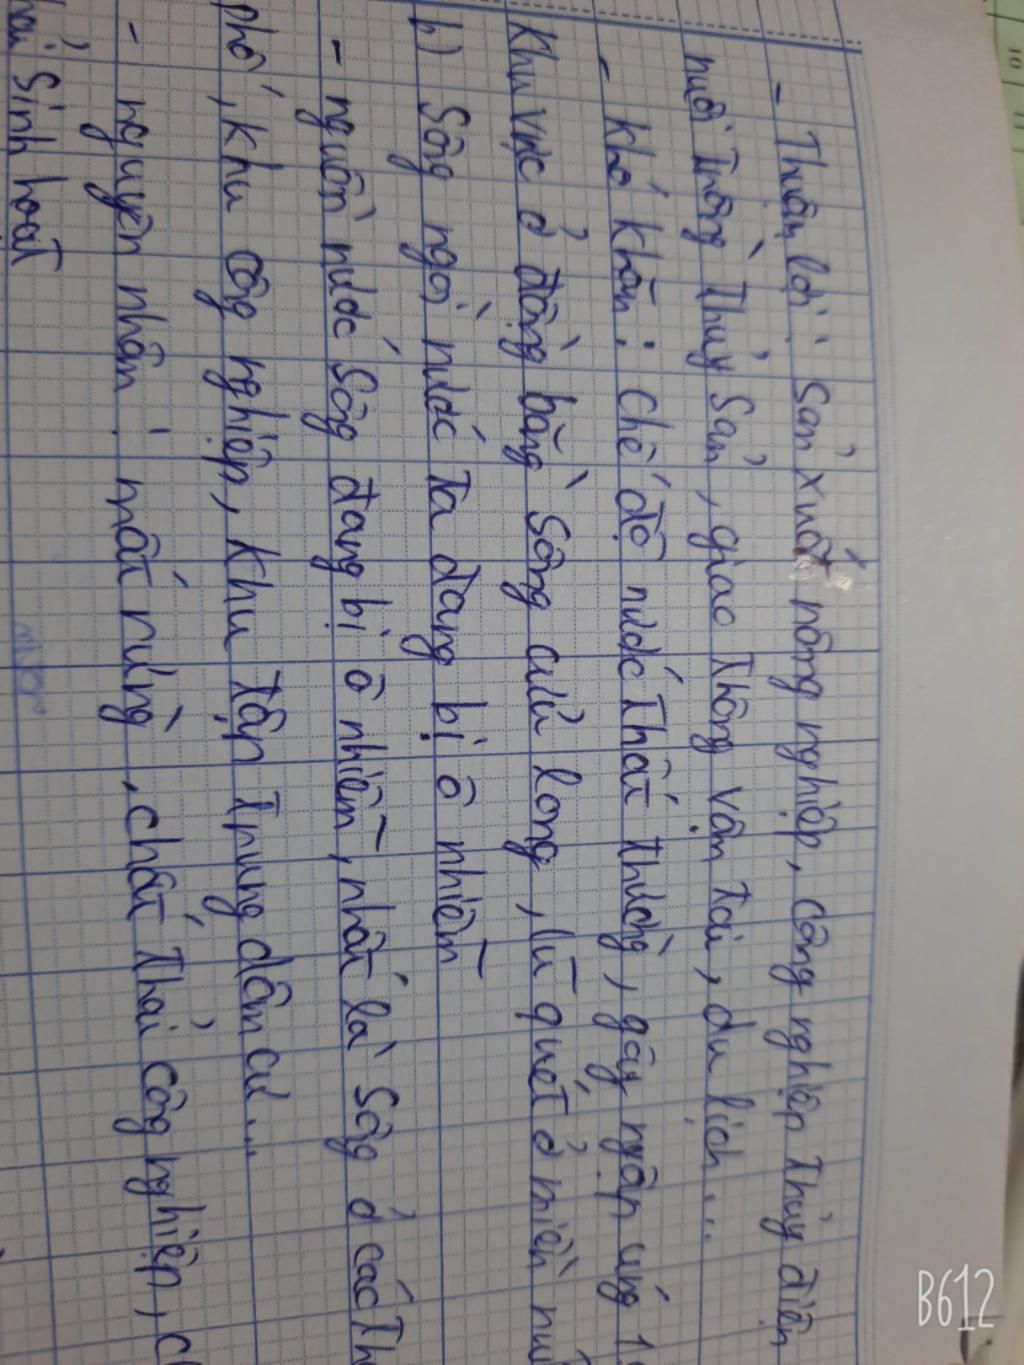 - Thuận lợi: Sản xuất nông nghiệp, công nghiệp Thủy điện
nuôi Trồng Thủy Sản, giao Thông vận Tải, du lịch...
- khó khăn: chế độ nước Thất Thường, gây ngập úng 1
Khu vực ở đồng bằng Sông cửu long, lũ quét ở miền nú
b) Sông ngòi nước Ta đang bị ô nhiễm
- nguồn nước Sông đang bị ô nhiễm, nhất là Sông ở các Th
phố, khu công nghiệp, khu Tập Trung dân cư...
- nguyên nhân: mất rừng, chất Thải công nghiệp, ch
Sinh hoạt
B612